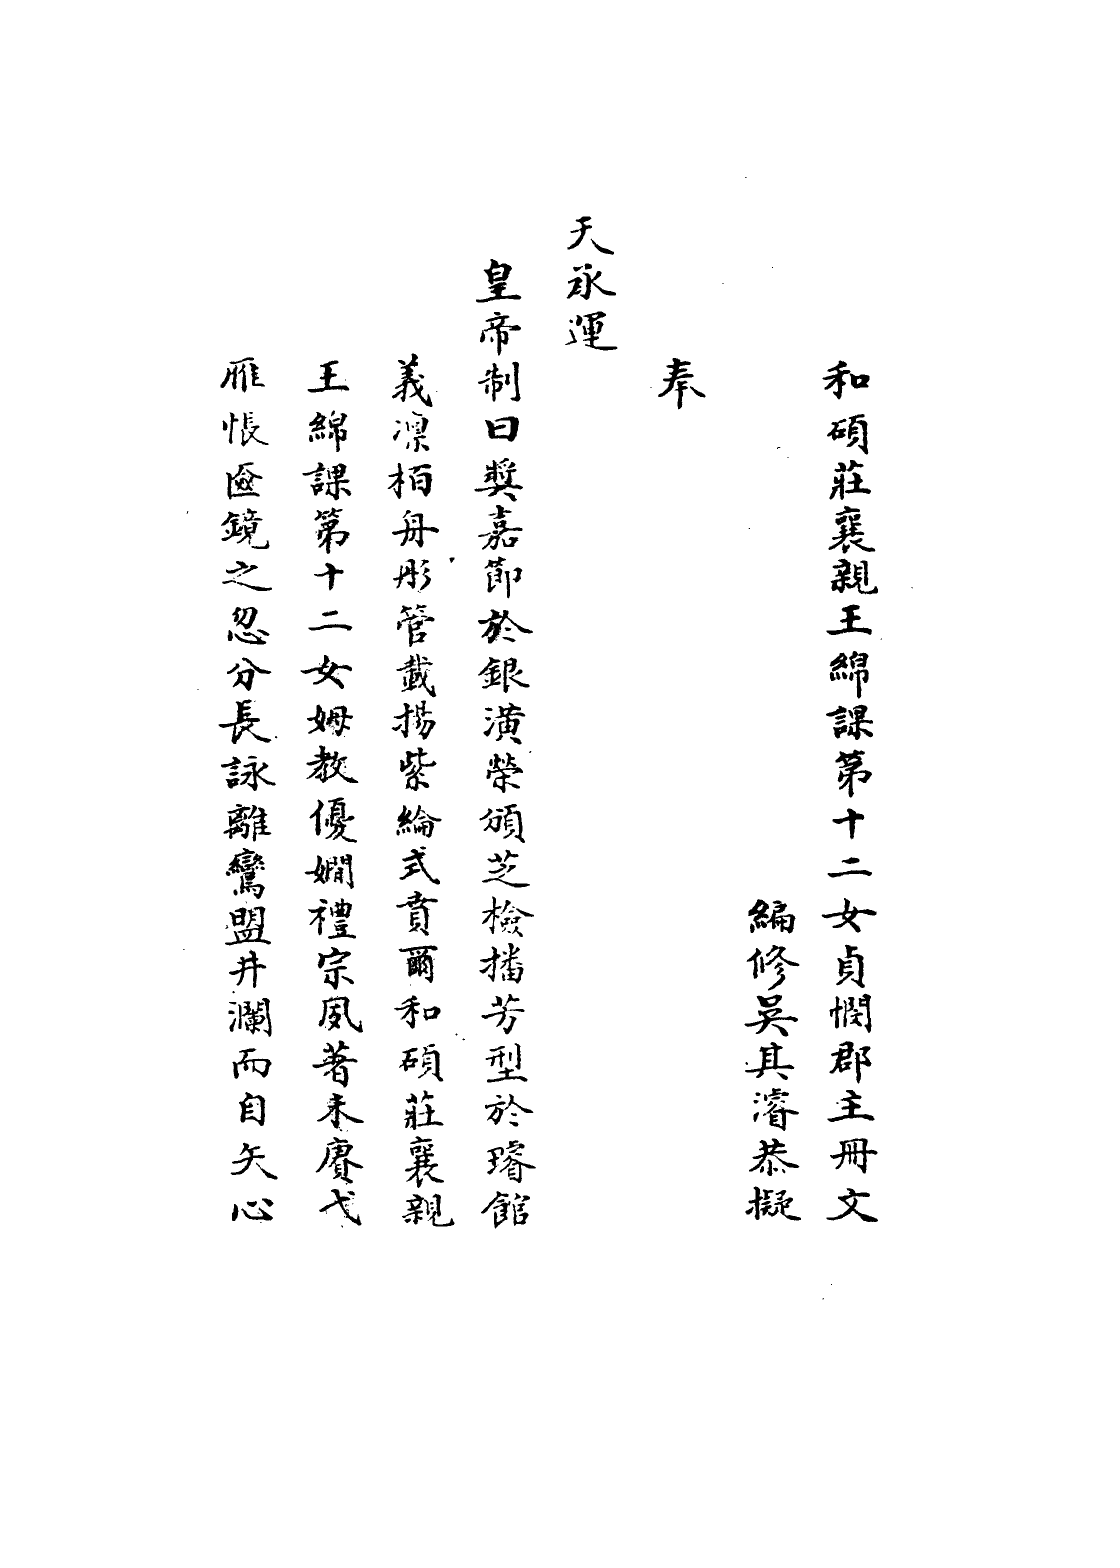 和碩莊襄親王綿課第十二女貞憫郡主冊文
編修吳其濬恭擬
奉
天承運
皇帝制曰獎嘉節於銀潢榮頒芝檢播芳型於璿館
義凛栢舟彤管載揚紫綸式賁爾和碩莊襄親
王綿課第十二女姆教優嫻禮宗夙著未賡弋
雁悵奩鏡之忽分長詠離鸞盟井瀾而自矢心